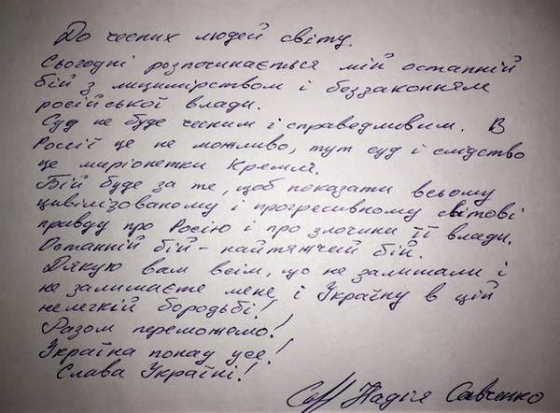 До чесних людей світу.
Сьогодні розпочинається мій останній
бій з лицимірством і беззаконням
російської влади.
Суд не буде чесним і справедливим. В
Росії це не можливо, тут суд і слідство
це маріонетки Кремля.
Бій буде за те, щоб показати всьому
цивілізованому і прогресивному світові
правду про Росію і про злочини її влади.
Останній бій - найтяжчий бій.
Дякую вам всім, що не залишали і
не залишаєте мене і Україну в цій
нелегкій бородьбі!
Разом переможемо!
Україна понад усе!
Слава Україні!
Надія Савченко